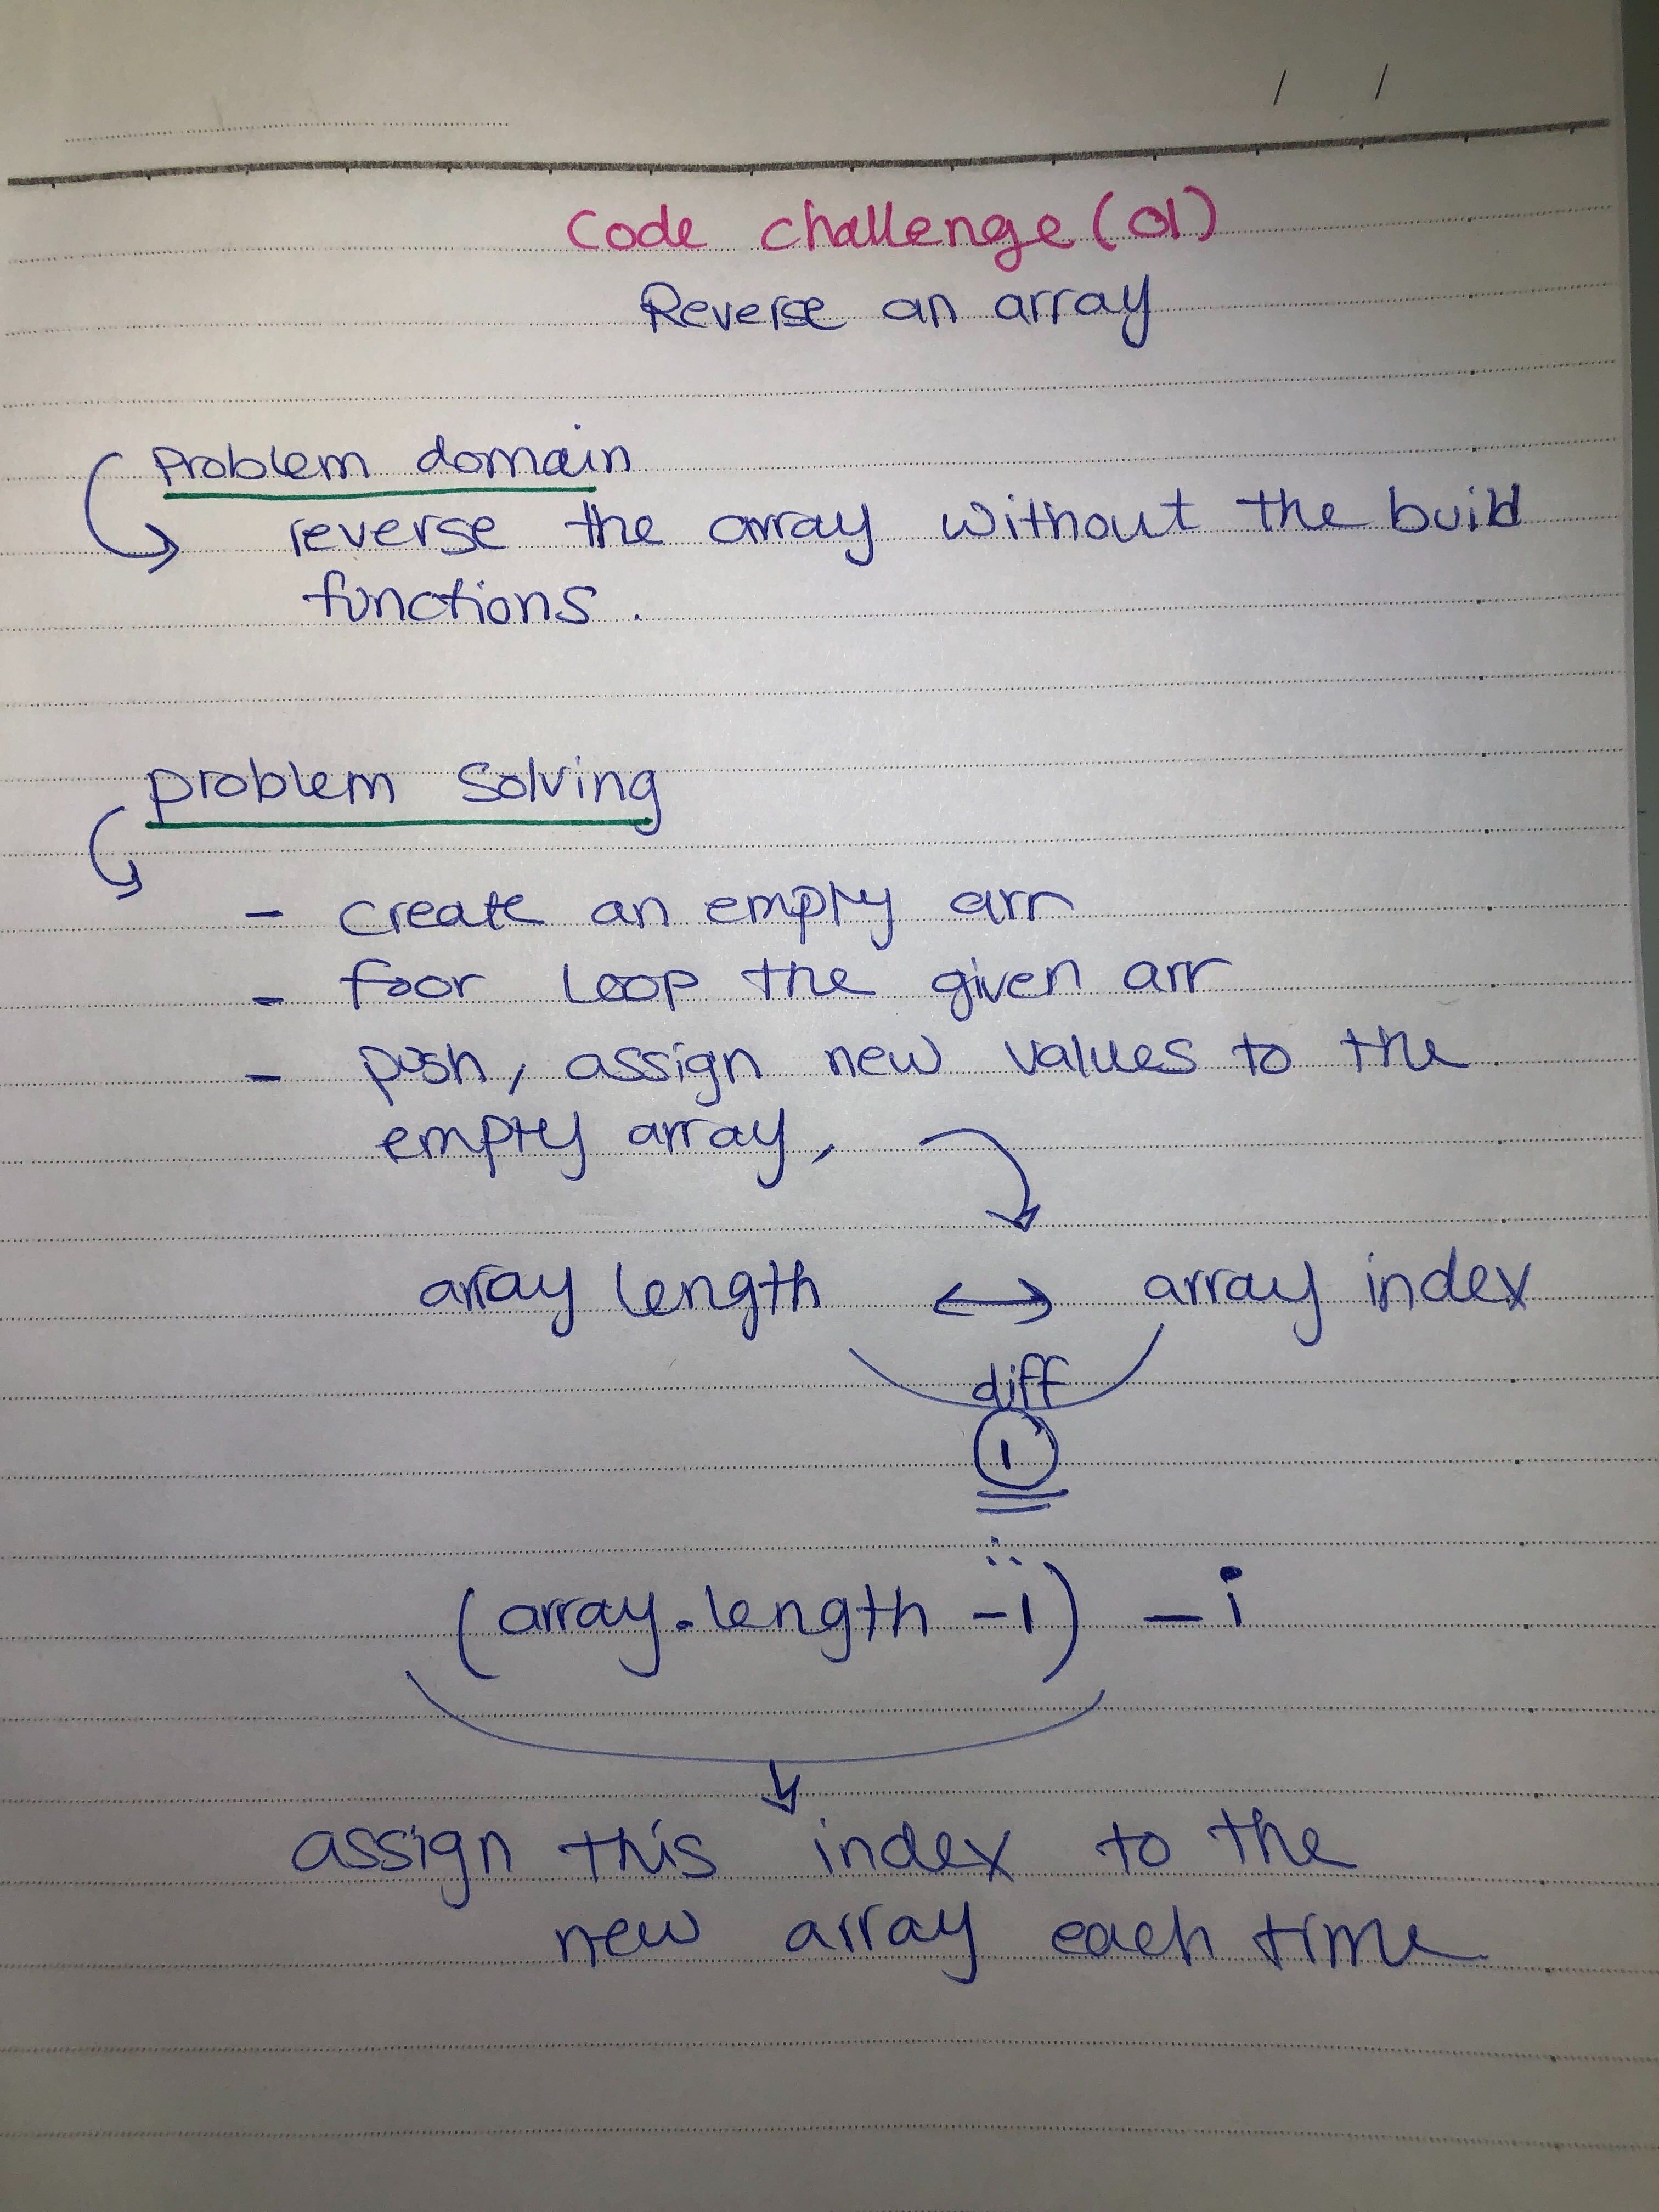 / /
Code challenge (01)
Reverse an array
Problem domain
reverse the array without the build
functions.
problem solving
- create an empty arr
- foor loop the given arr
- push, assign new values to the
empty array,
array length ↔ array index
diff
1
(array.length -1) - i
assign this index to the
new array each time